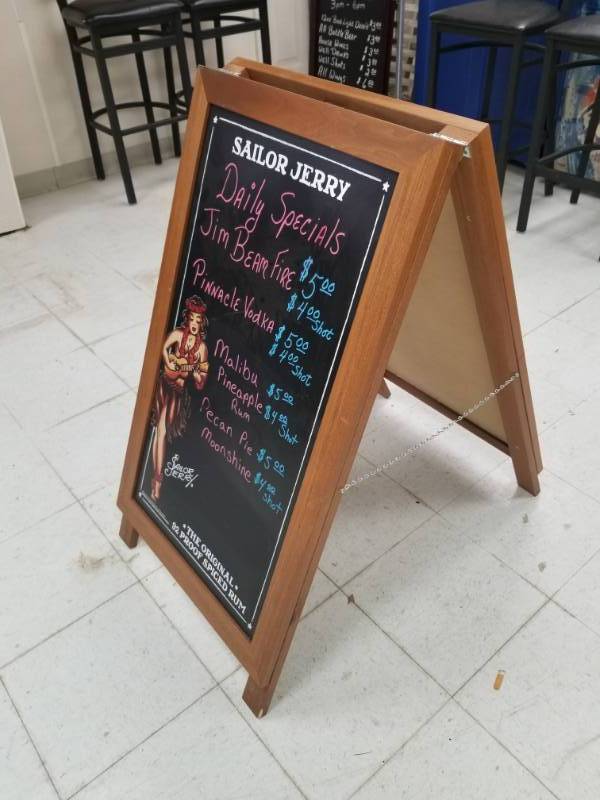 3pm - 6pm
All Bottle Beer $3
House Wines $3
Well Drinks $3
Well Shots $2
All Wings $6
SAILOR JERRY
Daily Specials
Jim Beam Fire $5.00
$4.00 Shot
Pinnacle Vodka $5.00
$4.00 Shot
Malibu $5.00
Pineapple $4.00
Rum Shot
Pecan Pie $5.00
Moonshine $4.00
Shot
SAILOR
JERRY
THE ORIGINAL
92 PROOF SPICED RUM